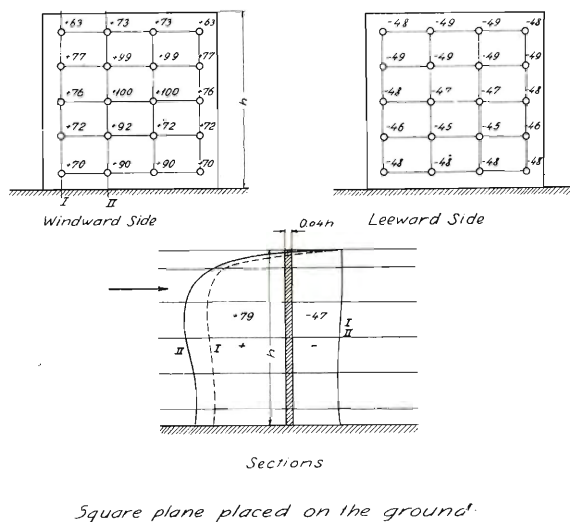 +63 +73 +73 +63
+77 +99 +99 +77
+76 +100 +100 +76
+72 +92 +72 +72
+70 +90 +90 +70
I II
h
Windward Side
-48 -49 -49 -48
-49 -49 -49 -49
-48 -47 -47 -48
-46 -45 -45 -46
-48 -48 -48 -48
Leeward Side
0.04h
+79 -47
II I + h - I
II
Sections
Square plane placed on the ground.